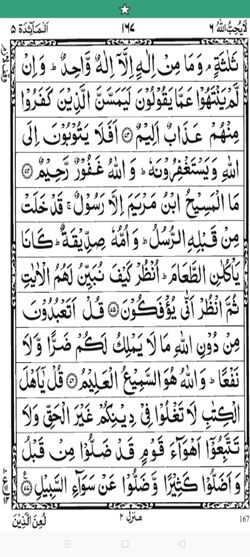 المَآئدة ٥ ١٦٧ لا يحب الله ٦
ثَلٰثَةٍ ۘ وَمَا مِنْ اِلٰهٍ اِلَّاۤ اِلٰهٌ وَّاحِدٌ ؕ وَاِنْ
لَّمْ يَنْتَهُوْا عَمَّا يَقُوْلُوْنَ لَيَمَسَّنَّ الَّذِيْنَ كَفَرُوْا
مِنْهُمْ عَذَابٌ اَلِيْمٌ ﴿۷۳﴾ اَفَلَا يَتُوْبُوْنَ اِلَى
اللّٰهِ وَيَسْتَغْفِرُوْنَهٗ ؕ وَاللّٰهُ غَفُوْرٌ رَّحِيْمٌ ﴿۷۴﴾
مَا الْمَسِيْحُ ابْنُ مَرْيَمَ اِلَّا رَسُوْلٌ ۚ قَدْ خَلَتْ
مِنْ قَبْلِهِ الرُّسُلُ ؕ وَاُمُّهٗ صِدِّيْقَةٌ ؕ كَانَا
يَاْكُلٰنِ الطَّعَامَ ؕ اُنْظُرْ كَيْفَ نُبَيِّنُ لَهُمُ الْاٰيٰتِ
ثُمَّ انْظُرْ اَنّٰى يُؤْفَكُوْنَ ﴿۷۵﴾ قُلْ اَتَعْبُدُوْنَ
مِنْ دُوْنِ اللّٰهِ مَا لَا يَمْلِكُ لَكُمْ ضَرًّا وَّلَا
نَفْعًا ؕ وَاللّٰهُ هُوَ السَّمِيْعُ الْعَلِيْمُ ﴿۷۶﴾ قُلْ يٰۤاَهْلَ
الْكِتٰبِ لَا تَغْلُوْا فِيْ دِيْنِكُمْ غَيْرَ الْحَقِّ وَلَا
تَتَّبِعُوْۤا اَهْوَآءَ قَوْمٍ قَدْ ضَلُّوْا مِنْ قَبْلُ
وَاَضَلُّوْا كَثِيْرًا وَّضَلُّوْا عَنْ سَوَآءِ السَّبِيْلِ ﴿۷۷﴾
لُعِنَ الَّذِيْنَ منزل ٢ 167